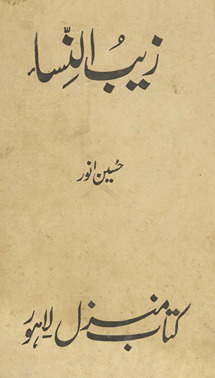 زیبُ النِّساء
حسین انور
کتاب منزل لاہور